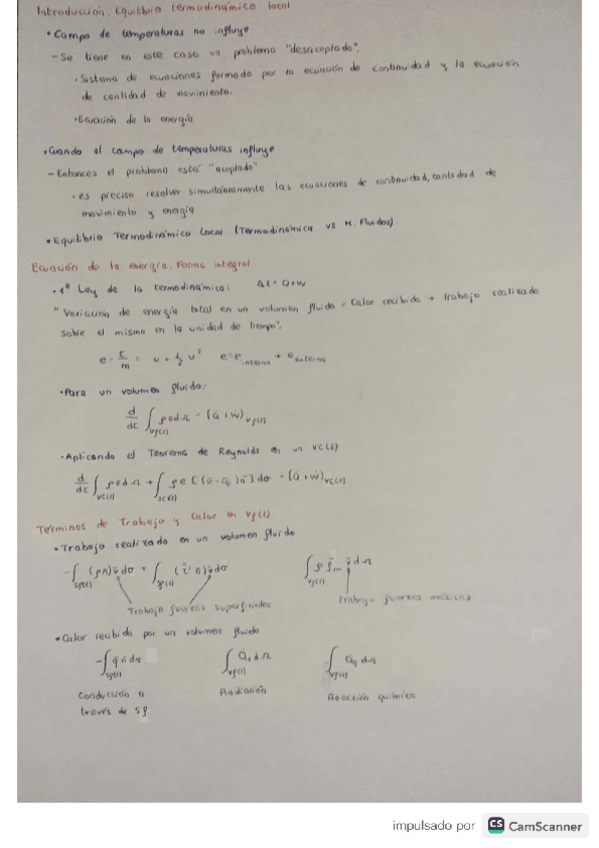 Introducción. Equilibrio termodinámico local
• Campo de temperaturas no influye
- Se tiene en este caso un problema "desacoplado".
• Sistema de ecuaciones formado por la ecuación de continuidad y la ecuación
de cantidad de movimiento.
• Ecuación de la energía
• Cuando el campo de temperaturas influye
- Entonces el problema está "acoplado"
• es preciso resolver simultáneamente las ecuaciones de continuidad, cantidad de
movimiento y energía
• Equilibrio Termodinámico Local (Termodinámica vs M. Fluidos)
Ecuación de la energía. Forma integral
• 1ª Ley de la termodinámica: ΔE = Q + W
"Variación de energía total en un volumen fluido = Calor recibido + trabajo realizado
sobre el mismo en la unidad de tiempo".
e = E/m = u + 1/2 v² e = e interna + e externa
• Para un volumen fluido:
d/dt ∫Vf(t) ρ e dΩ = (Q̇ + Ẇ)Vf(t)
• Aplicando el Teorema de Reynolds en un VC(t)
d/dt ∫VC(t) ρ e dΩ + ∫SC(t) ρ e [(v̄ - v̄c) n̄] dσ = (Q̇ + Ẇ)VC(t)
Términos de Trabajo y Calor en Vf(t)
• Trabajo realizado en un volumen fluido
- ∫Sf(t) (p n̄) v̄ dσ + ∫Sf(t) (τ̄' n̄) v̄ dσ ∫Vf(t) ρ f̄m v̄ dΩ
Trabajo fuerzas superficiales trabajo fuerzas másicas
• Calor recibido por un volumen fluido
- ∫Sf(t) q̄ n̄ dσ ∫Vf(t) Q̇r dΩ ∫Vf(t) Q̇q dΩ
Conducción a Radiación Reacción química
través de Sf
impulsado por CS CamScanner